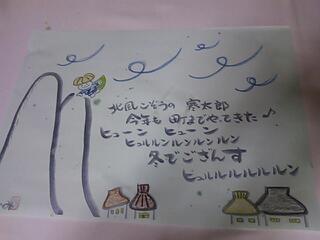 北風こぞうの 寒太郎
今年も 町までやってきた♪
ヒューン ヒューン
ヒュルルンルンルンルン
冬でござんす
ヒュルルルルルルン